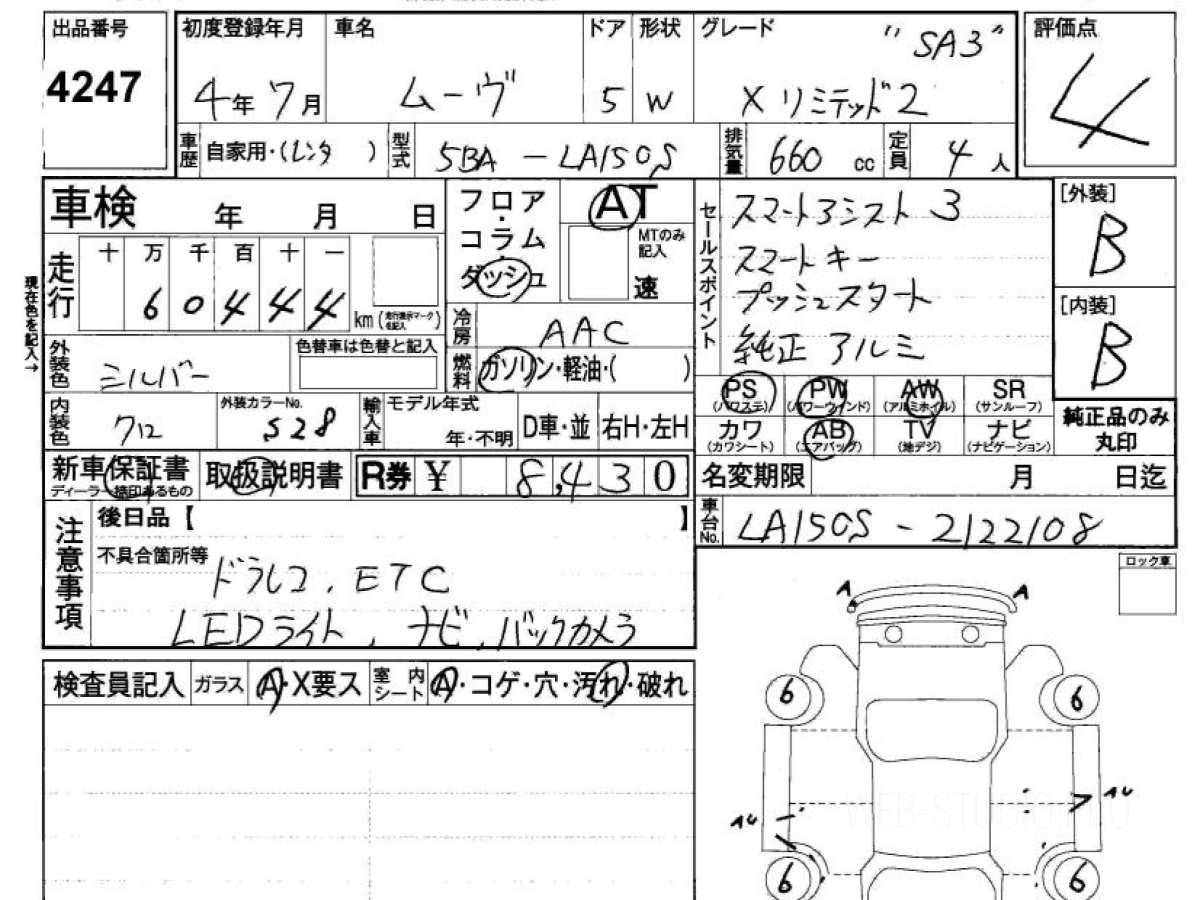 出品番号 初度登録年月 車名 ドア 形状 グレード "SA3" 評価点
4247 4年7月 ムーヴ 5 W X リミテッド2 4
車歴 自家用・(レンタ ) 型式 5BA-LA150S 排気量 660 cc 定員 4人
車検 年 月 日
フロア・コラム・ダッシュ
AT
MTのみ記入
速
セールスポイント
スマートアシスト3
スマートキー
プッシュスタート
純正アルミ
[外装]
B
[内装]
B
現在色を記入→
走行 十 万 千 百 十 一
6 0 4 4 4 km(走行表示マークを記入)
冷房 AAC
燃料 ガソリン・軽油・( )
外装色 シルバー 色替車は色替と記入
内装色 712 外装カラーNo. S28
輸入車 モデル年式 年・不明 D車・並 右H・左H
PS (パワステ) PW (パワーウインド) AW (アルミホイル) SR (サンルーフ)
カワ (カワシート) AB (エアバッグ) TV (地デジ) ナビ (ナビゲーション)
純正品のみ丸印
新車保証書 ディーラー捺印あるもの 取扱説明書 R券 ¥ 8,430
名変期限 月 日迄
車台No. LA150S-2122108
注意事項
後日品【 】
不具合箇所等
ドラレコ, ETC
LEDライト, ナビ, バックカメラ
ロック車
検査員記入 ガラス A・X要ス 室内シート A・コゲ・穴・汚れ・破れ
A A
6 6
AU AU
6 6
WEB-STUDIO.PRO